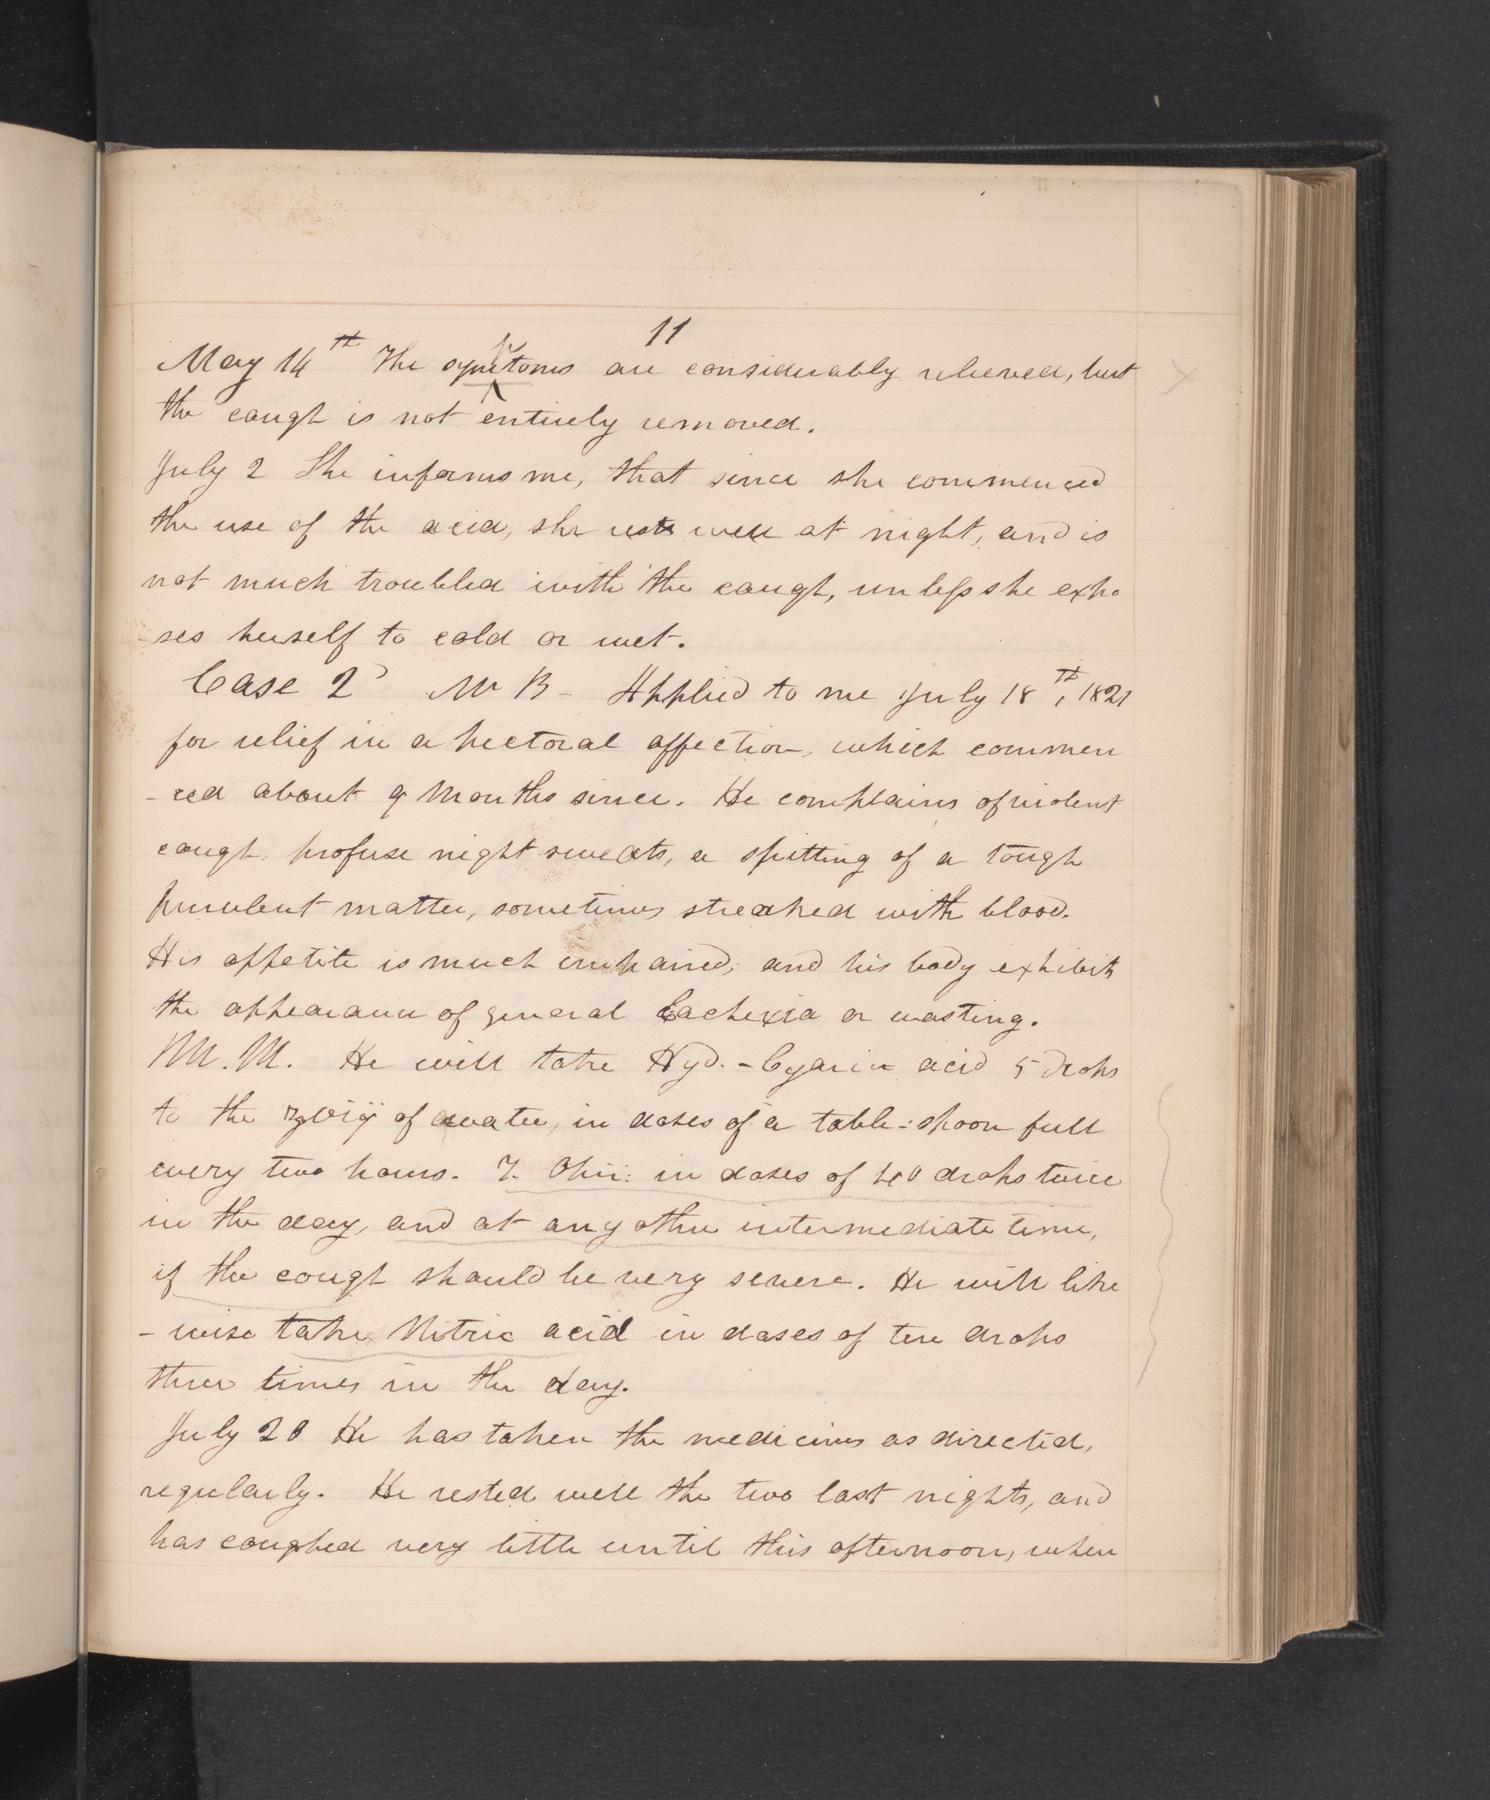 11
May 14th The symptoms are considerably relieved, but
the cough is not entirely removed.
July 2 She informs me, that since she commenced
the use of the acid, she rests well at night, and is
not much troubled with the cough, unless she expo
-ses herself to cold or wet.
Case 2d Mr B- Applied to me July 18th, 1821
for relief in a pectoral affection, which commen
-ced about 9 Months since. He complains of violent
cough, profuse night sweats, a spitting of a tough
purulent matter, sometimes streaked with blood.
His appetite is much impaired, and his body exhibits
the appearance of general Cachexia or wasting.
M.M. He will take Hyd.-Cyanic acid 5 drops
to the ℥vij of water, in doses of a table-spoon full
every two hours. T. Opii: in doses of 40 drops twice
in the day, and at any other intermediate time,
if the cough should be very severe. He will like
-wise take Nitric acid in doses of ten drops
three times in the day.
July 20 He has taken the medicines as directed,
regularly. He rested well the two last nights, and
has coughed very little until this afternoon, when